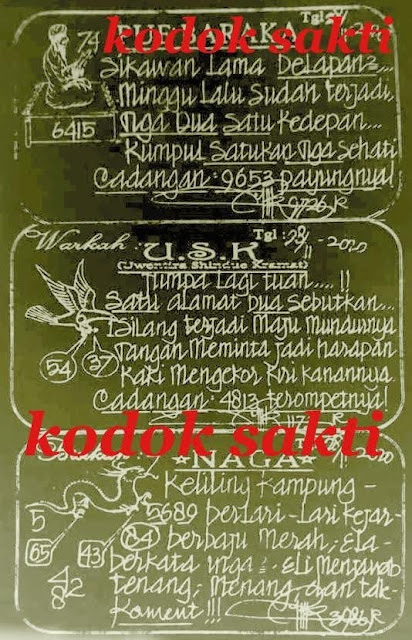 74
kodok sakti
6415
Sikawan Lama Delapan2...
Minggu Lalu Sudah terjadi,
Nga Dua Satu Kedepan...
Kumpul Satukan Nga Sehati
Cadangan: 9653 payungnya!
Warkah: U.S.K Tgl: -2020
(Uwentira Shindue Kramat)
Jumpa lagi tuan....!!
Satu alamat Dua Sebutkan...
Bilang terjadi Maju Mundurnya
Tangan Meminta jadi harapan
Kaki Mengekor Kiri Kanannya
24 37
Cadangan: 4813 terompetnya!
kodok sakti
NAGA
Keliling Kampung -
5 5689 berlari-lari kejar-
65 43 84 berbaju Merah; Ela-
berkata
82 tenang; Menang,
Koment!!!